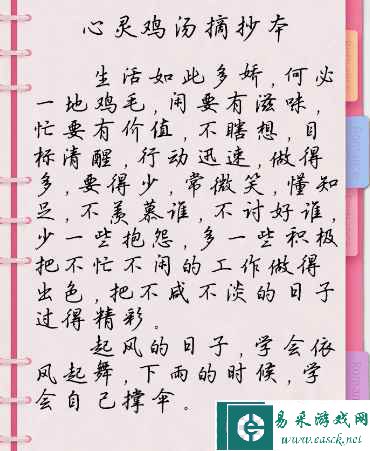 心灵鸡汤摘抄本
生活如此多娇,何必
一地鸡毛,闲要有滋味,
忙要有价值,不瞎想,目
标清醒,行动迅速,做得
多,要得少,常微笑,懂知
足,不羡慕谁,不讨好谁,
少一些抱怨,多一些积极
把不忙不闲的工作做得
出色,把不咸不淡的日子
过得精彩。
起风的日子,学会依
风起舞,下雨的时候,学
会自己撑伞。
易采游戏网
www.easck.net